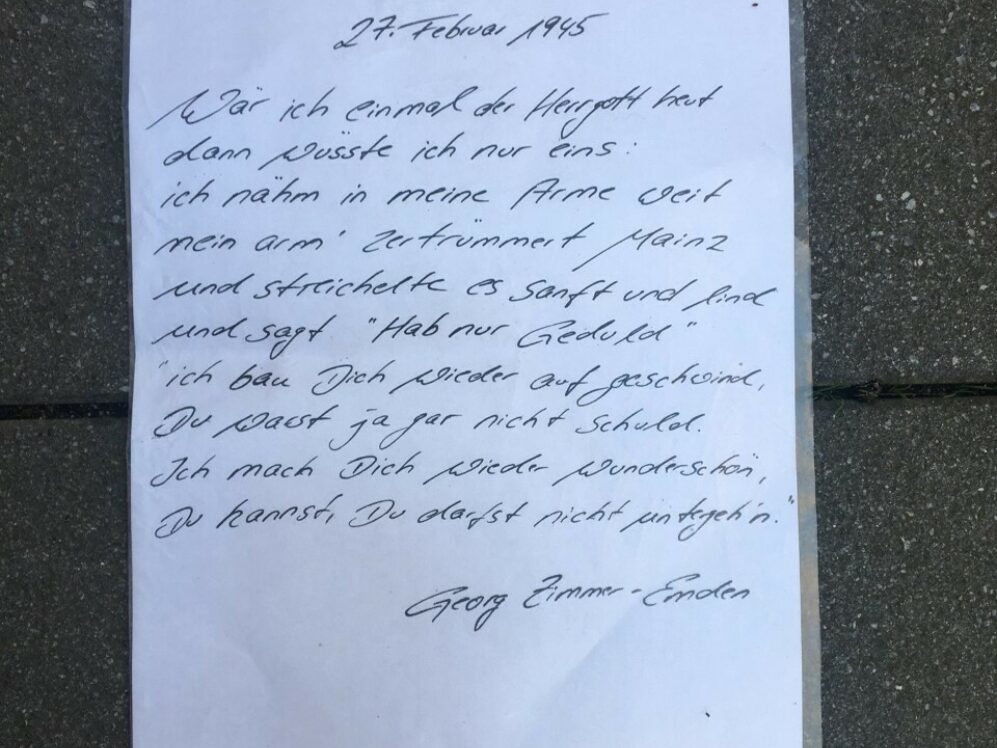 27. Februar 1945
Wär ich einmal der Herrgott heut
dann wüsste ich nur eins:
ich nähm in meine Arme weit
mein arm' zertrümmert Mainz
und streichelte es sanft und lind
und sagt "Hab nur Geduld"
"ich bau Dich wieder auf geschwind,
Du warst ja gar nicht schuld.
Ich mach Dich wieder wunderschön,
Du kannst, Du darfst nicht untergeh'n."
Georg Zimmer-Emden